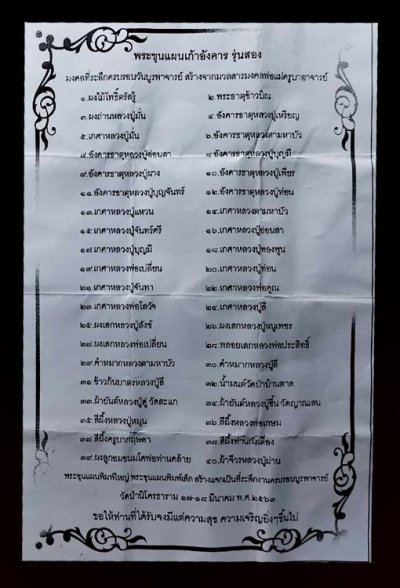 พระขุนแผนเก้าอังคาร รุ่นสอง
มงคลที่ระลึกครบรอบวันบูรพาจารย์ สร้างจากมวลสารมงคลพ่อแม่ครูบาอาจารย์
๑.ผงไม้โพธิ์ตรัสรู้ ๒.พระธาตุข้าวบิณ
๓.ผงถ่านหลวงปู่มั่น ๔.อังคารธาตุหลวงปู่เหรียญ
๕.เกศาหลวงปู่มั่น ๖.อังคารธาตุหลวงตามหาบัว
๗.อังคารธาตุหลวงปู่อ่อนสา ๘.อังคารธาตุหลวงปู่บุญมี
๙.อังคารธาตุหลวงปู่ผาง ๑๐.อังคารธาตุหลวงปู่เพียร
๑๑.อังคารธาตุหลวงปู่บุญจันทร์ ๑๒.อังคารธาตุหลวงปู่ท่อน
๑๓.เกศาหลวงปู่แหวน ๑๔.เกศาหลวงตามหาบัว
๑๕.เกศาหลวงปู่จันทร์ศรี ๑๖.เกศาหลวงปู่อ่อนสา
๑๗.เกศาหลวงปู่บุญมี ๑๘.เกศาหลวงปู่ทองพูน
๑๙.เกศาหลวงพ่อเปลี่ยน ๒๐.เกศาหลวงปู่ท่อน
๒๑.เกศาหลวงปู่จันทา ๒๒.เกศาหลวงพ่อคูณ
๒๓.เกศาหลวงพ่อโสวัจ ๒๔.เกศาหลวงปู่ลี
๒๕.ผงเสกหลวงปู่สังข์ ๒๖.ผงเสกหลวงปู่หนูเพชร
๒๗.ผงเสกหลวงพ่อเปลี่ยน ๒๘.พลอยเสกหลวงพ่อประสิทธิ์
๒๙.คำหมากหลวงตามหาบัว ๓๐.คำหมากหลวงปู่ลี
๓๑ ข้าวก้นบาตรหลวงปู่ลี ๓๒.น้ำมนต์วัดป่าบ้านตาด
๓๓.ผ้ายันต์หลวงปู่ดู่ วัดสะแก ๓๔.ผ้ายันต์หลวงปู่ชื่น วัดญาณเสน
๓๕.สีผึ้งหลวงปู่หมุน ๓๖.สีผึ้งหลวงพ่อเกษม
๓๗.สีผึ้งครูบากฤษดา ๓๘.สีผึ้งท่านกังเตื้อง
๓๙.ผงลูกอมชนมโคพ่อท่านคล้าย ๔๐.ผ้าจีวรหลวงปู่ผ่าน
พระขุนแผนพิมพ์ใหญ่ พระขุนแผนพิมพ์เล็ก สร้างแจกเป็นที่ระลึกงานครบรอบบูรพาจารย์
วัดป่านิโครธาราม ๑๗-๑๘ มีนาคม พ.ศ.๒๕๖๓
ขอให้ท่านที่ได้รับจงมีแต่ความสุข ความเจริญยิ่งๆขึ้นไป